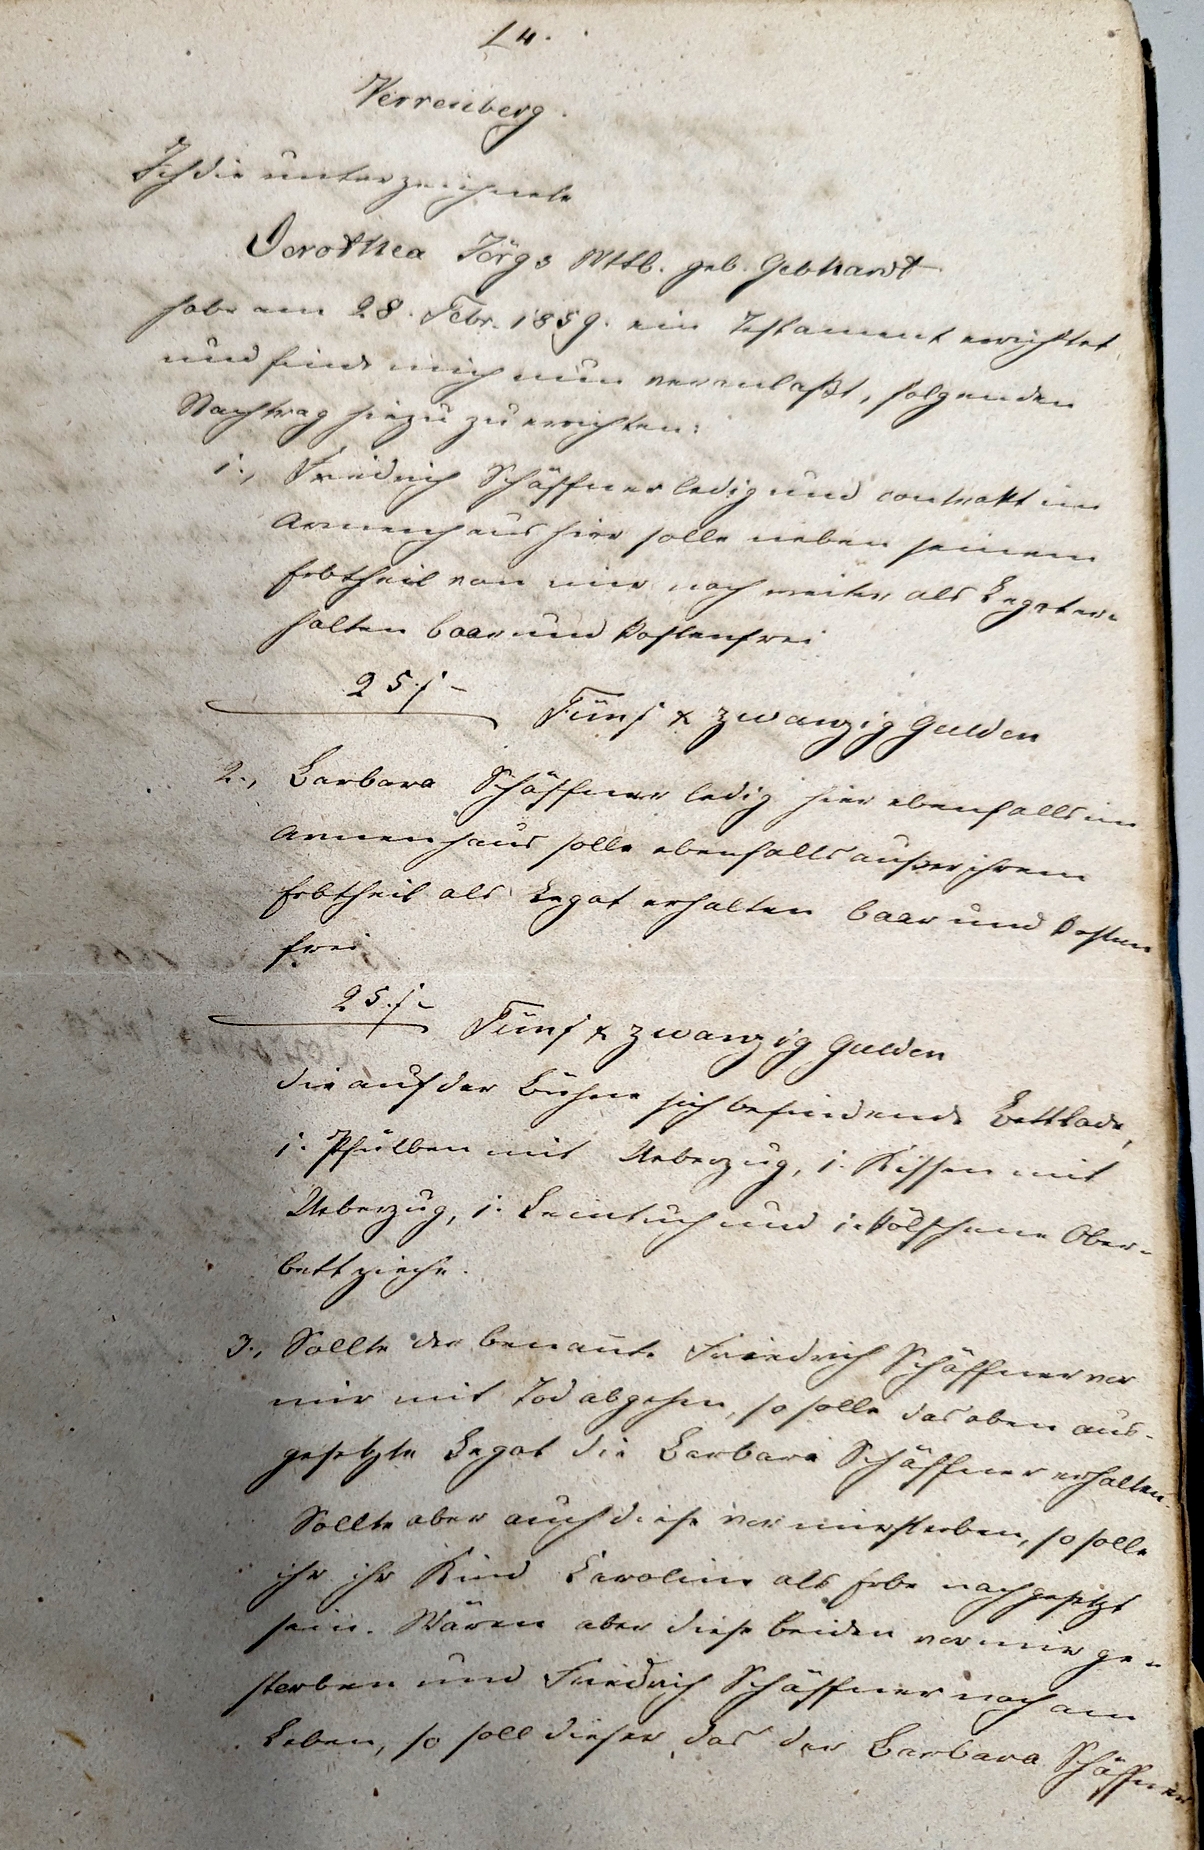 L 4.
Verrenberg.
Ich die unterzeichnete
Dorothea Jörgs Wttb. geb. Gebhardt
habe am 28. Febr. 1859. ein Testament errichtet,
und finde mich nun veranlaßt, folgenden
Nachtrag hiezu zu errichten:
1., Friedrich Schäffner ledig und contrakt im
Armenhaus hier solle neben seinem
Erbtheil von mir noch weiter als Legat er-
halten baar und kostenfrei
25 f –
Fünf & zwanzig Gulden
2., Barbara Schäffner ledig hier ebenfalls im
Armenhaus solle ebenfalls außer ihrem
Erbtheil als Legat erhalten baar und kosten
frei
25. f –
Fünf & zwanzig Gulden
die auf der Bühne sich befindende Bettlade,
1. Pfülben mit Ueberzug, 1. Kissen mit
Ueberzug, 1. Leintuch und 1. kölschene Ober-
bettzieche.
3., Sollte der benañte Friedrich Schäffner vor
mir mit Tod abgehen, so solle das oben aus-
gesetzte Legat die Barbara Schäffner erhalten.
Sollte aber auch diese vor mir sterben, so solle
ihr ihr Kind Carolina als Erbe nachgesetzt
sein. Wären aber diese beiden vor mir ge-
storben und Friedrich Schäffner noch am
Leben, so soll dieser das der Barbara Schäffner